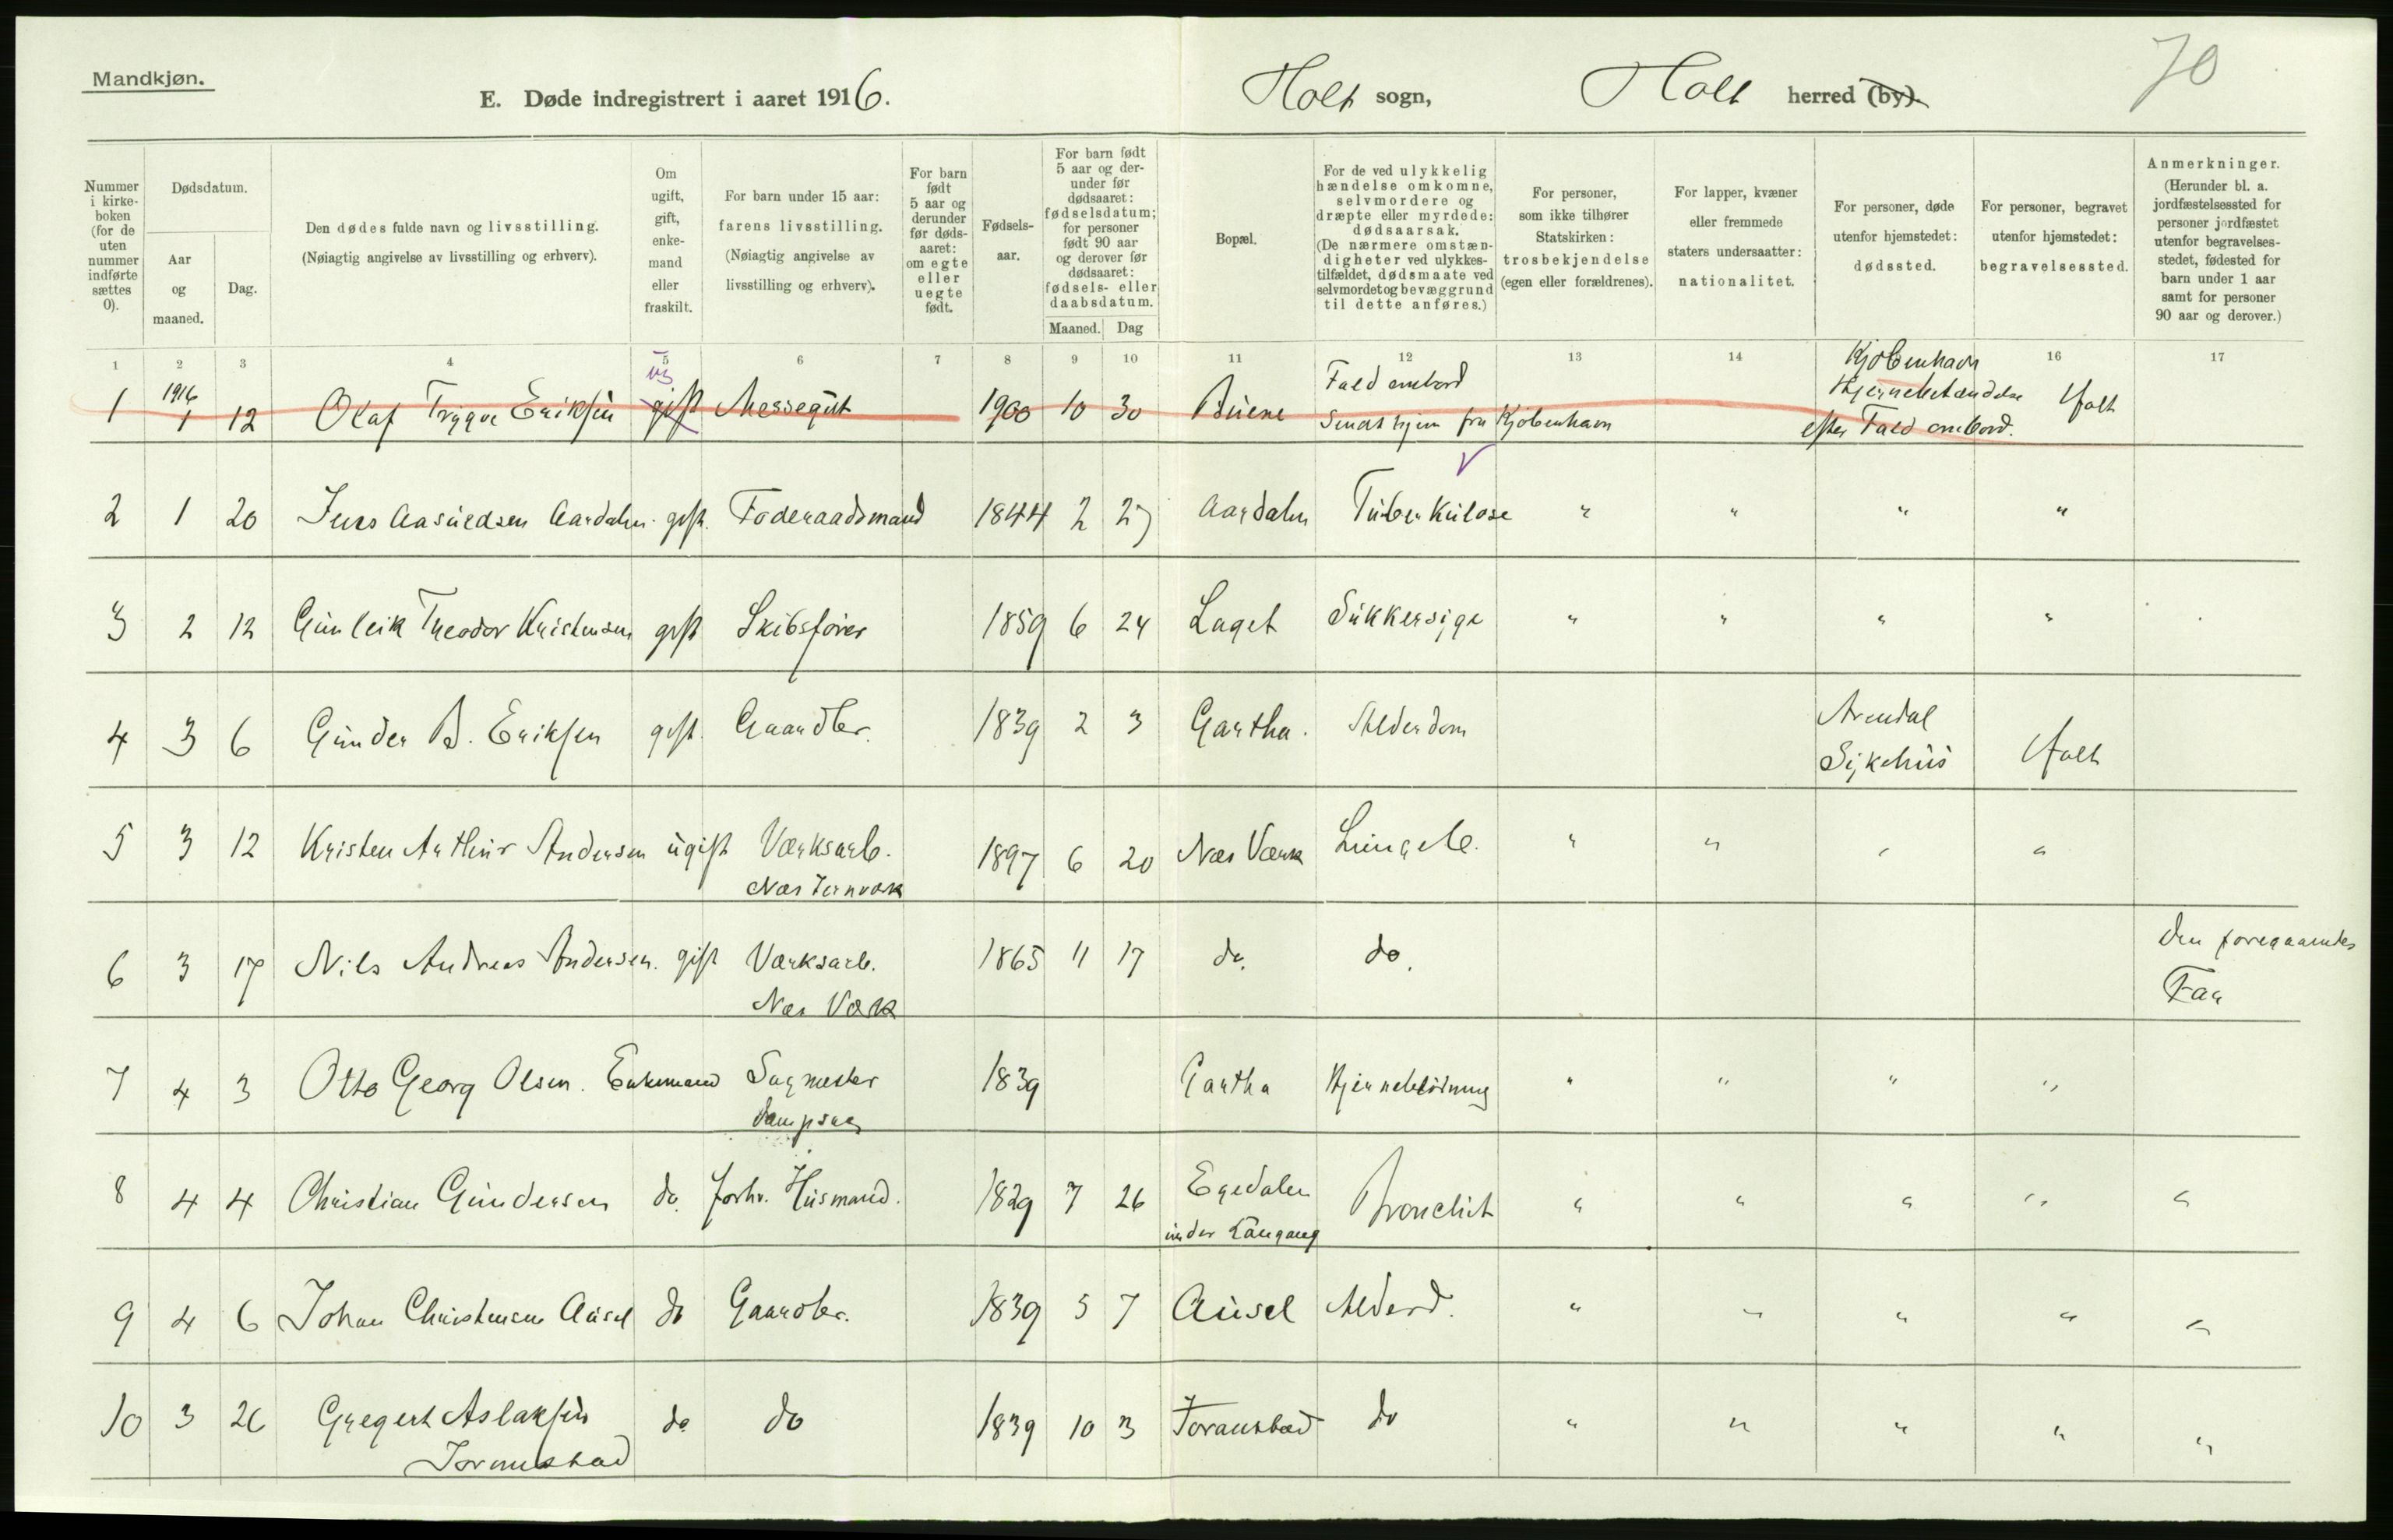 Mandkjøn.
E. Døde indregistrert i aaret 1916.
Holt sogn, Holt herred (by).
70
Nummer i kirkeboken (for de uten nummer indførte sættes 0).
Dødsdatum.
Aar og maaned.
Dag.
Den dødes fulde navn og livsstilling.
(Nøiagtig angivelse av livsstilling og erhverv).
Om ugift, gift, enkemand eller fraskilt.
For barn under 15 aar: farens livsstilling.
(Nøiagtig angivelse av livsstilling og erhverv).
For barn født 5 aar og derunder før dødsaaret: om egte eller uegte født.
Fødselsaar.
For barn født 5 aar og derunder før dødsaaret: fødselsdatum; for personer født 90 aar og derover før dødsaaret: fødsels- eller daabsdatum.
Maaned. Dag
Bopæl.
For de ved ulykkelig hændelse omkomne, selvmordere og dræpte eller myrdede: dødsaarsak.
(De nærmere omstændigheter ved ulykkestilfældet, dødsmaate ved selvmord et og bevæggrund til dette anføres.)
For personer, som ikke tilhører Statskirken: trosbekjendelse (egen eller forældrenes).
For lapper, kvæner eller fremmede staters undersaatter: nationalitet.
For personer, døde utenfor hjemstedet: dødssted.
For personer, begravet utenfor hjemstedet: begravelsessted.
Anmerkninger.
(Herunder bl. a. jordfæstelsessted for personer jordfæstet utenfor begravelsesstedet, fødested for barn under 1 aar samt for personer 90 aar og derover.)
1 2 3 4 5 6 7 8 9 10 11 12 13 14 16 17
1 1916 1 12 Olaf Trygve Eriksen ug gift Messegut 1900 10 30 Buene Fald ombord Sendt hjem fra Kjøbenhavn Kjøbenhavn Hjernebetændelse efter Fald ombord. Holt
2 1 20 Jens Aasuldsen Aardalen gift. Føderaadsmand 1844 2 27 Aardalen Tuberkulose " " " "
3 2 12 Gunleik Theodor Kristensen gift Skibsfører 1859 6 24 Laget Sukkersyge " " " "
4 3 6 Gunder B. Eriksen gift. Gaardbr. 1839 2 3 Gartha. Alderdom Arendal Sykehus Holt
5 3 12 Kristen Arthur Andersen ugift Værksarb. Næs Jernværk 1897 6 20 Næs Værk Lungeb. " " " "
6 3 17 Nils Andreas Andersen. gift Værksarb. Næs Værk 1865 11 17 do. do. Den foregaaendes Far
7 4 3 Otto Georg Olsen. Enkemand Sagmester Dampsag 1839 Gartha Hjerneblødning " " " "
8 4 4 Christian Gundersen do. forhv. Husmand. 1829 7 26 Egedalen under Langang Bronchit " " " " "
9 4 6 Johan Christensen Ausel do Gaardbr. 1839 5 7 Ausel Alderd. " " " " "
10 3 26 Gregert Aslaksen Joranstad do do 1839 10 3 Joranstad do " " " " "